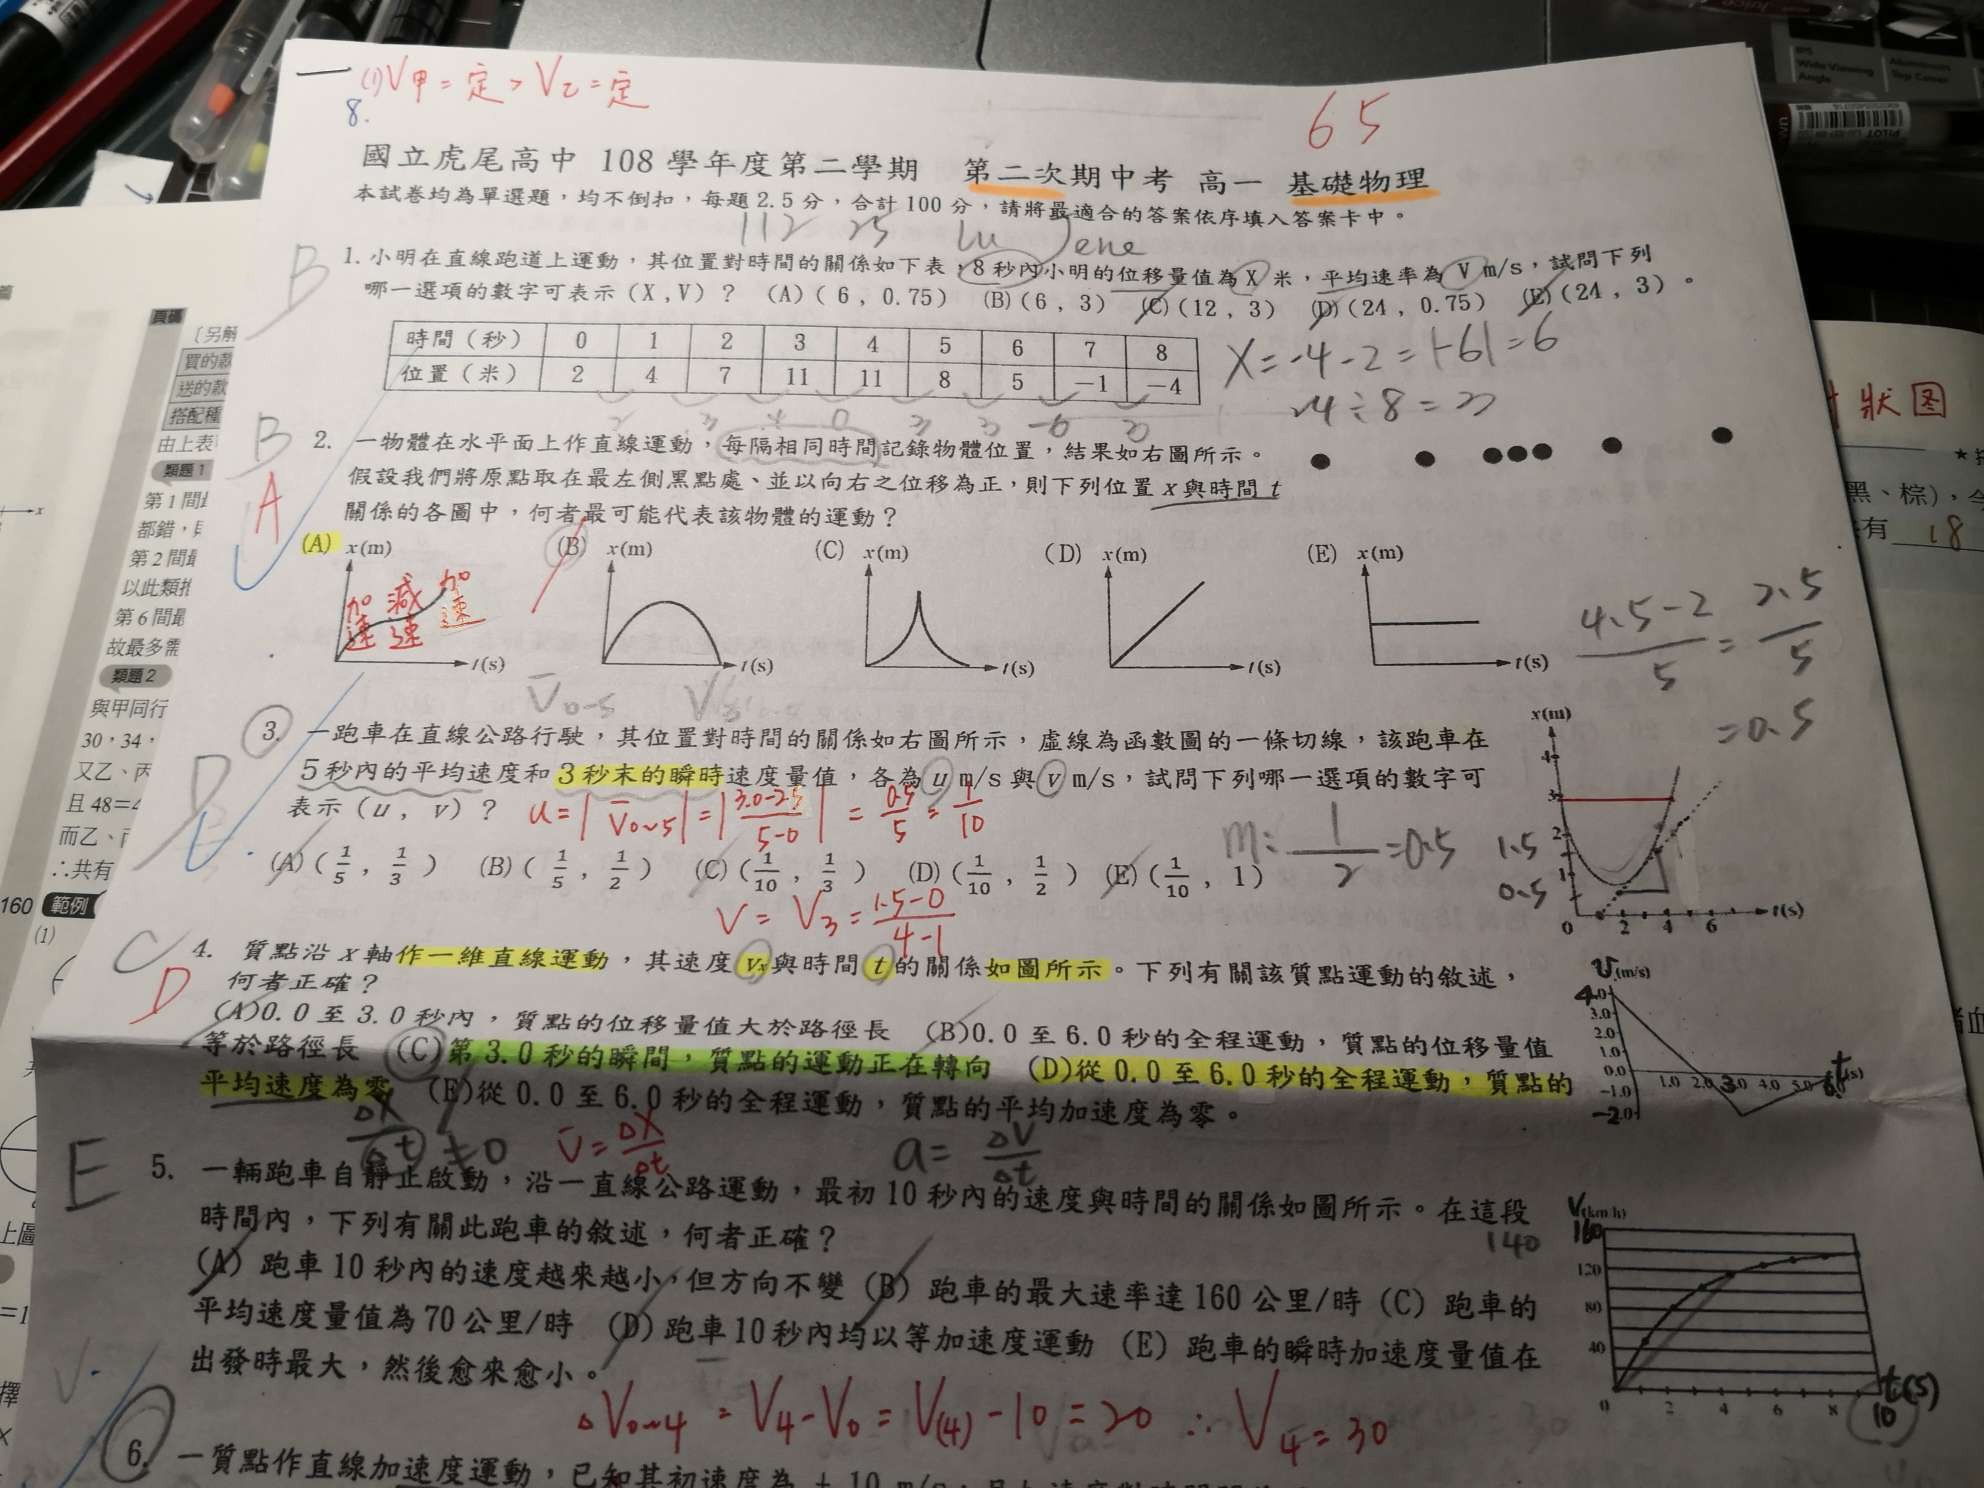 (1)V甲=定,V乙=定
8.
65
國立虎尾高中 108 學年度第二學期 第二次期中考 高一 基礎物理
本試卷均為單選題，均不倒扣，每題 2.5 分，合計 100 分，請將最適合的答案依序填入答案卡中。
112 25 Lu Jene
B
1. 小明在直線跑道上運動，其位置對時間的關係如下表，8 秒內小明的位移量值為 X 米，平均速率為 V m/s，試問下列
哪一選項的數字可表示(X,V)？ (A)(6, 0.75) (B)(6, 3) (C)(12, 3) (D)(24, 0.75) (E)(24, 3)。
時間（秒） 0 1 2 3 4 5 6 7 8
位置（米） 2 4 7 11 11 8 5 −1 −4
X=-4-2=|-6|=6
B
A
2. 一物體在水平面上作直線運動，每隔相同時間記錄物體位置，結果如右圖所示。
假設我們將原點取在最左側黑點處、並以向右之位移為正，則下列位置 x 與時間 t
關係的各圖中，何者最可能代表該物體的運動？
(A) x(m) t(s) 加速 減速 加速
(B) x(m) t(s)
(C) x(m) t(s)
(D) x(m) t(s)
(E) x(m) t(s)
4.5-2/5 = 2.5/5
=0.5
V̄0-5
D
3. 一跑車在直線公路行駛，其位置對時間的關係如右圖所示，虛線為函數圖的一條切線，該跑車在
5 秒內的平均速度和 3 秒末的瞬時速度量值，各為 u m/s 與 v m/s，試問下列哪一選項的數字可
表示(u, v)？
u=|V̄0~5|=|3.0-2.5/5-0|=0.5/5=1/10
(A)(1/5, 1/3) (B)(1/5, 1/2) (C)(1/10, 1/3) (D)(1/10, 1/2) (E)(1/10, 1)
m=1/2=0.5
1.5
0.5
V=V3=1.5-0/4-1
x(m) 4 3 2 1 0 2 4 6 t(s)
C
D
4. 質點沿 x 軸作一維直線運動，其速度 vx 與時間 t 的關係如圖所示。下列有關該質點運動的敘述，
何者正確？
(A)0.0 至 3.0 秒內，質點的位移量值大於路徑長 (B)0.0 至 6.0 秒的全程運動，質點的位移量值
等於路徑長 (C)第 3.0 秒的瞬間，質點的運動正在轉向 (D)從 0.0 至 6.0 秒的全程運動，質點的
平均速度為零 (E)從 0.0 至 6.0 秒的全程運動，質點的平均加速度為零。
υ(m/s) 4.0 3.0 2.0 1.0 0.0 −1.0 −2.0 1.0 2.0 3.0 4.0 5.0 6.0 t(s)
ΔX/Δt≠0
v̄=ΔX/Δt
a=ΔV/Δt
E
5. 一輛跑車自靜止啟動，沿一直線公路運動，最初 10 秒內的速度與時間的關係如圖所示。在這段
時間內，下列有關此跑車的敘述，何者正確？
140
(A) 跑車 10 秒內的速度越來越小，但方向不變 (B) 跑車的最大速率達 160 公里/時 (C) 跑車的
平均速度量值為 70 公里/時 (D) 跑車 10 秒內均以等加速度運動 (E) 跑車的瞬時加速度量值在
出發時最大，然後愈來愈小。
V(km/h) 160 120 80 40 0 2 4 6 8 10 t(s)
ΔV0~4=V4-V0=V(4)-10=20 ∴V4=30
6. 一質點作直線加速度運動，已知其初速度為 + 10 m/s
頁碼
買的款
送的款
搭配種
由上表
類題1
第 1 間
都錯，
第 2 間
以此類推
第 6 間
故最多需
類題2
與甲同行
30，34，
又乙、丙
且 48=4
而乙、
∴共有
160 範例
(1)
上圖
狀図
黑、棕)，
共有 18